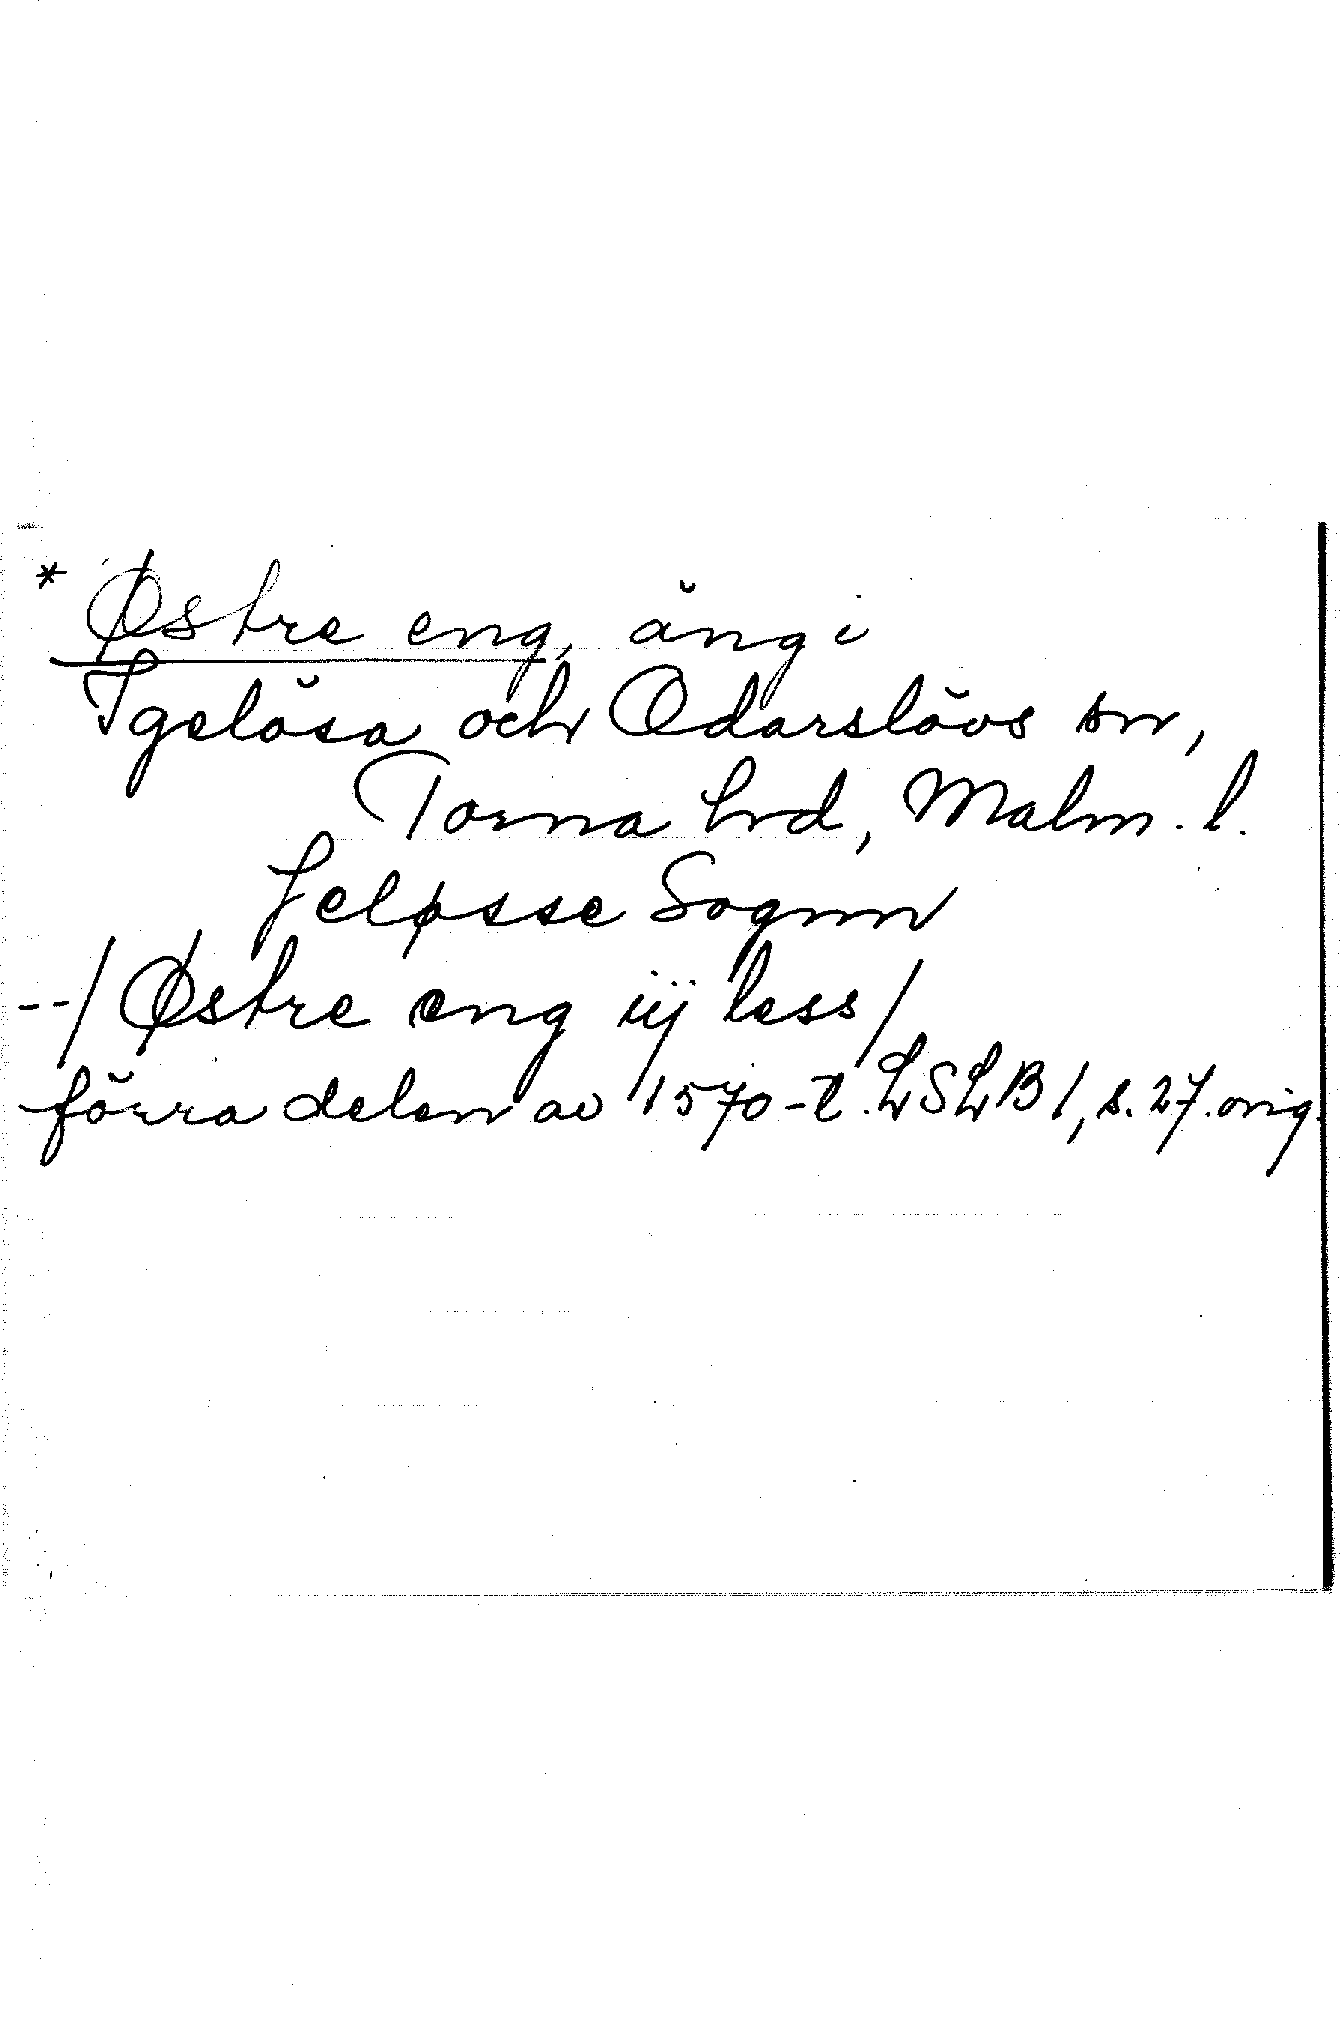 * Østre eng, äng i
Igelösa och Odarslövs snr,
Torna hrd, Malm. l.
Jeløsse Sognn
--/ Østre eng iij less /
förra delen av 1570-t. LSLB 1, s. 27. orig.